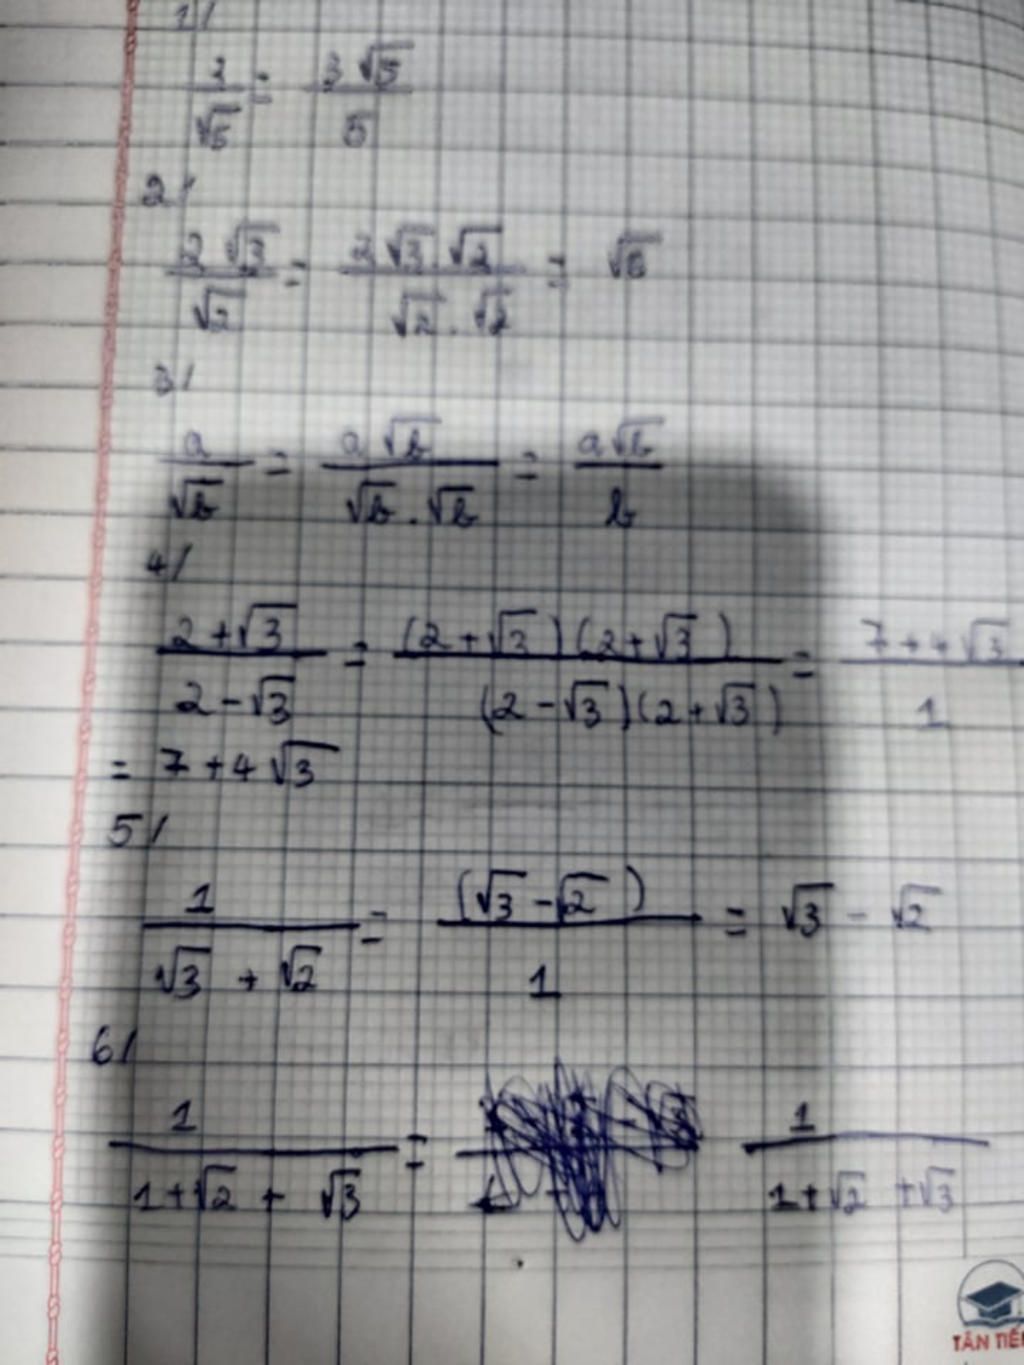 1/
3/√5 = 3√5/5
2/
2√3/√2 = 2√3 √2/√2 . √2 = √6
3/
a/√b = a√b/√b . √b = a√b/b
4/
2+√3/2-√3 = (2+√3)(2+√3)/(2-√3)(2+√3) = 7+4√3/1
= 7+4√3
5/
1/√3 + √2 = (√3-√2)/1 = √3 - √2
6/
1/1+√2 + √3 = 1/1+√2 +√3